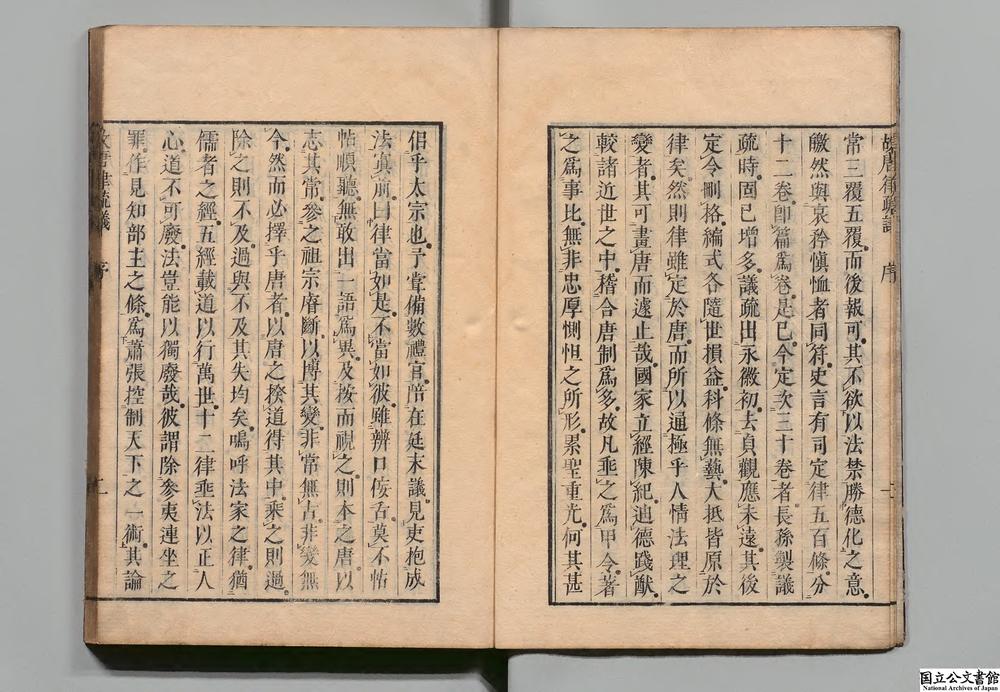 常三覆五覆而後報可其不欲以法禁勝德化之意
皦然與哀矜慎恤者同符史言有司定律五百條分
十二卷卽篇爲卷是已今定次三十卷者長孫製議
疏時固已增多議疏出永徽初去貞觀應未遠其後
定令刪格編式各隨世損益科條無藝大抵皆原於
律矣然則律雖定於唐而所以通極乎人情法理之
變者其可畫唐而遽止哉國家立經陳紀迪德踐猷
較諸近世之中稽合唐制爲多故凡垂之爲甲令著
之爲事比無非忠厚惻怛之所形累聖重光何其甚
侣乎太宗也予嘗備數禮官陪在廷末議見吏抱成
法寘前曰律當如是不當如彼雖辨口佞舌莫不帖
帖順聽無敢出一語爲異及按而視之則本之唐以
志其常參之祖宗睿斷以博其變非常無古非變無
今然而必擇乎唐者以唐之揆道得其中乘之則過
除之則不及過與不及其失均矣嗚呼法家之律猶
儒者之經五經載道以行萬世十二律垂法以正人
心道不可廢法豈能以獨廢哉彼謂除參夷連坐之
罪作見知部主之條爲蕭張控制天下之一術其論
故唐律疏議
序
二
国立公文書館
National Archives of Japan